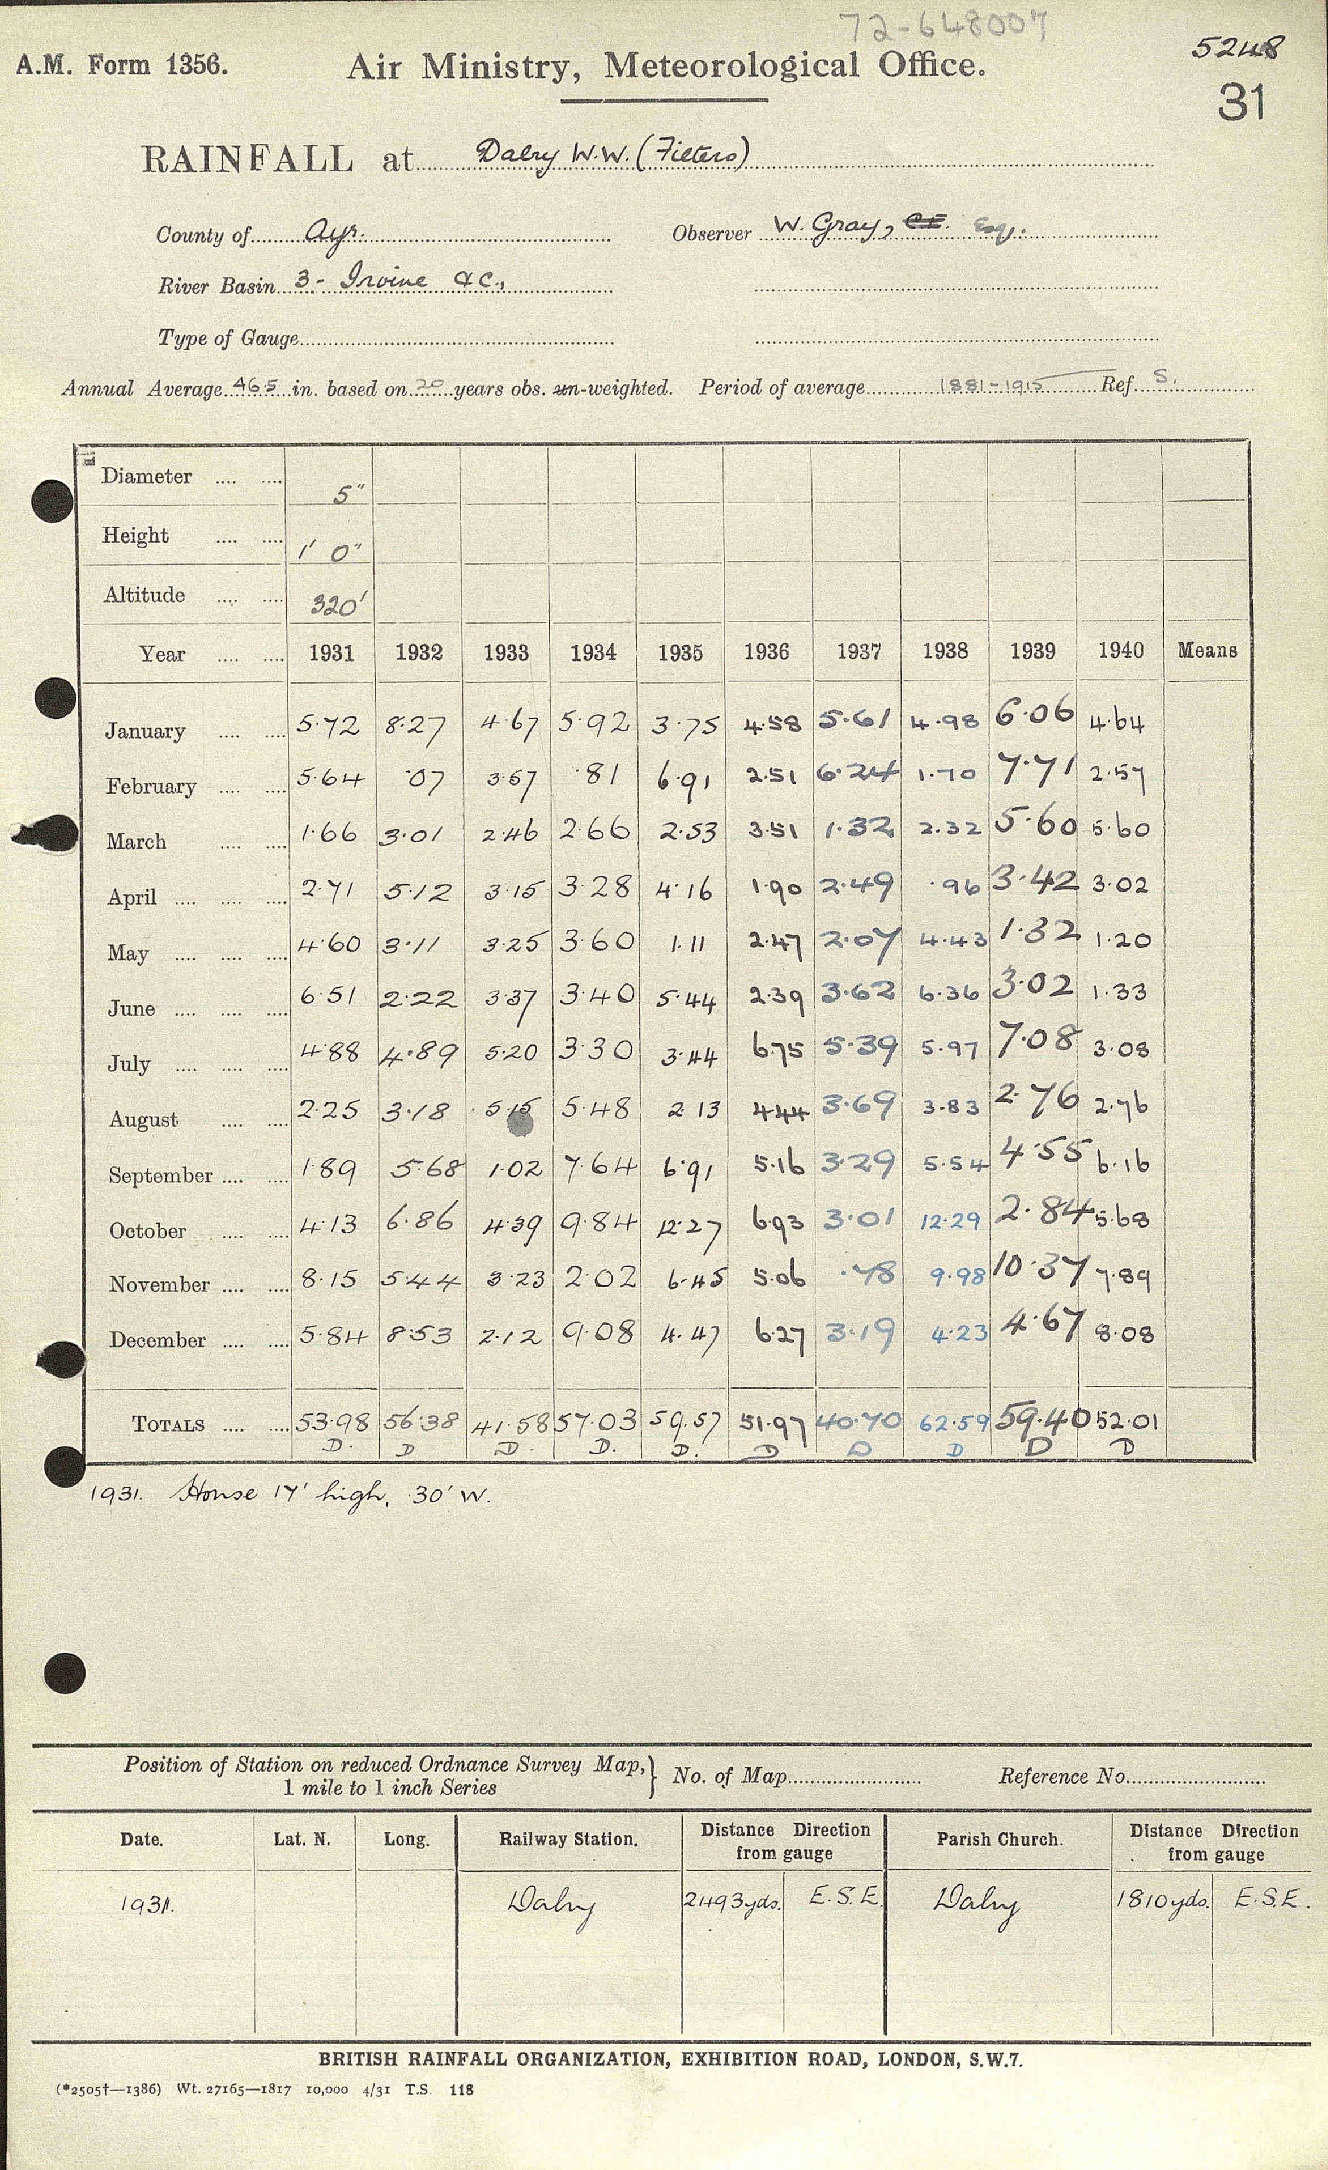 72-648007
5248
A.M. Form 1356. Air Ministry, Meteorological Office.
31
RAINFALL at Dalry W.W. (Filters)
County of Ayr. Observer W. Gray, C.E. Esq.
River Basin 3 - Irvine &c.,
Type of Gauge
Annual Average 46.5 in. based on 20 years obs. un-weighted. Period of average 1881-1915 Ref. S.
Diameter 5"
Height 1' 0"
Altitude 320'
Year 1931 1932 1933 1934 1935 1936 1937 1938 1939 1940 Means
January 5.72 8.27 4.67 5.92 3.75 4.58 5.61 4.98 6.06 4.64
February 5.64 .07 3.57 .81 6.91 2.51 6.24 1.70 7.71 2.57
March 1.66 3.01 2.46 2.66 2.53 3.51 1.32 2.32 5.60 5.60
April 2.71 5.12 3.15 3.28 4.16 1.90 2.49 .96 3.42 3.02
May 4.60 3.11 3.25 3.60 1.11 2.47 2.07 4.43 1.32 1.20
June 6.51 2.22 3.37 3.40 5.44 2.39 3.62 6.36 3.02 1.33
July 4.88 4.89 5.20 3.30 3.44 6.75 5.39 5.97 7.08 3.08
August 2.25 3.18 5.15 5.48 2.13 4.44 3.69 3.83 2.76 2.76
September 1.89 5.68 1.02 7.64 6.91 5.16 3.29 5.54 4.55 6.16
October 4.13 6.86 4.39 9.84 12.27 6.93 3.01 12.29 2.84 5.68
November 8.15 5.44 3.23 2.02 6.45 5.06 .78 9.98 10.37 7.89
December 5.84 8.53 2.12 9.08 4.47 6.27 3.19 4.23 4.67 8.08
TOTALS 53.98 56.38 41.58 57.03 59.57 51.97 40.70 62.59 59.40 52.01
D. D D. D. D. D D D D D
1931. House 17' high, 30' W.
Position of Station on reduced Ordnance Survey Map, 1 mile to 1 inch Series } No. of Map Reference No.
Date. Lat. N. Long. Railway Station. Distance from gauge Direction Parish Church. Distance from gauge Direction
1931. Dalry 2493 yds. E.S.E. Dalry 1810 yds. E.S.E.
BRITISH RAINFALL ORGANIZATION, EXHIBITION ROAD, LONDON, S.W.7.
(*2505†—1386) Wt. 27165—1817 10,000 4/31 T.S. 118